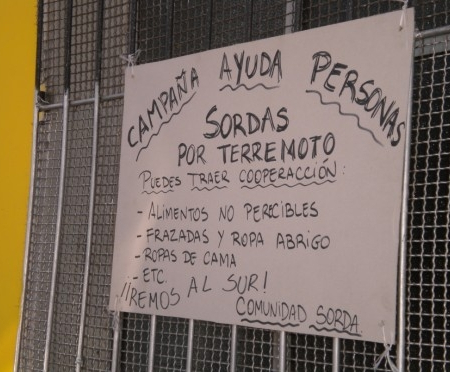 CAMPAÑA AYUDA PERSONAS
SORDAS
POR TERREMOTO
PUEDES TRAER COOPERACCIÓN:
- ALIMENTOS NO PERECIBLES
- FRAZADAS Y ROPA ABRIGO
- ROPAS DE CAMA
- ETC.
IIREMOS AL SUR!
COMUNIDAD SORDA.